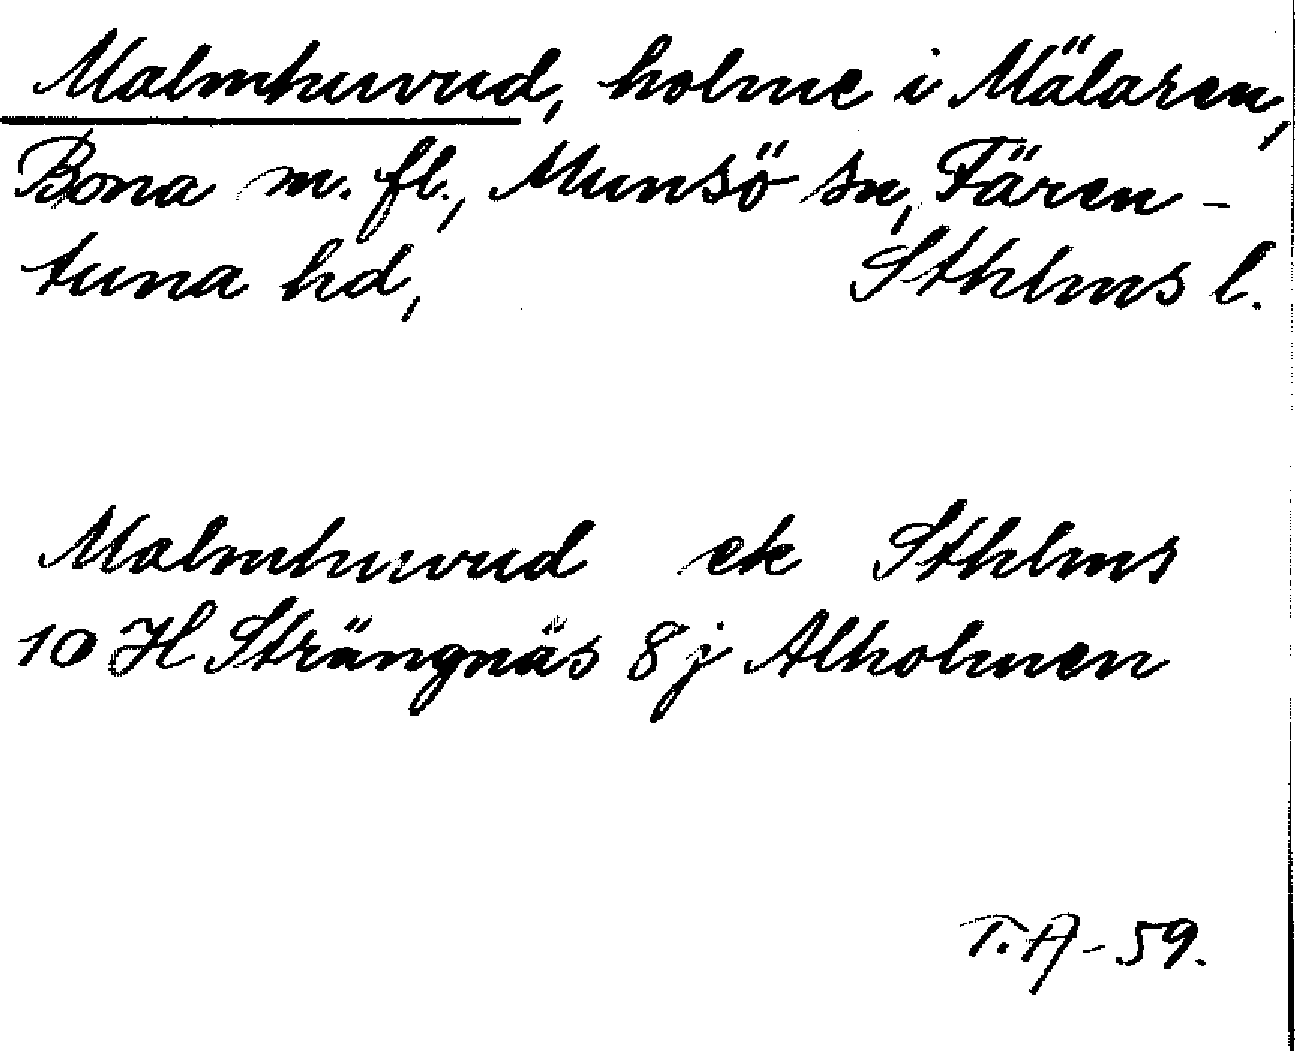 Malmhuvud, holme i Mälaren,
Bona m. fl., Munsö sn, Fären-
tuna hd, Sthlms l.
Malmhuvud ek Sthlms
10 H Strängnäs 8 j Alholmen
T. A -59.